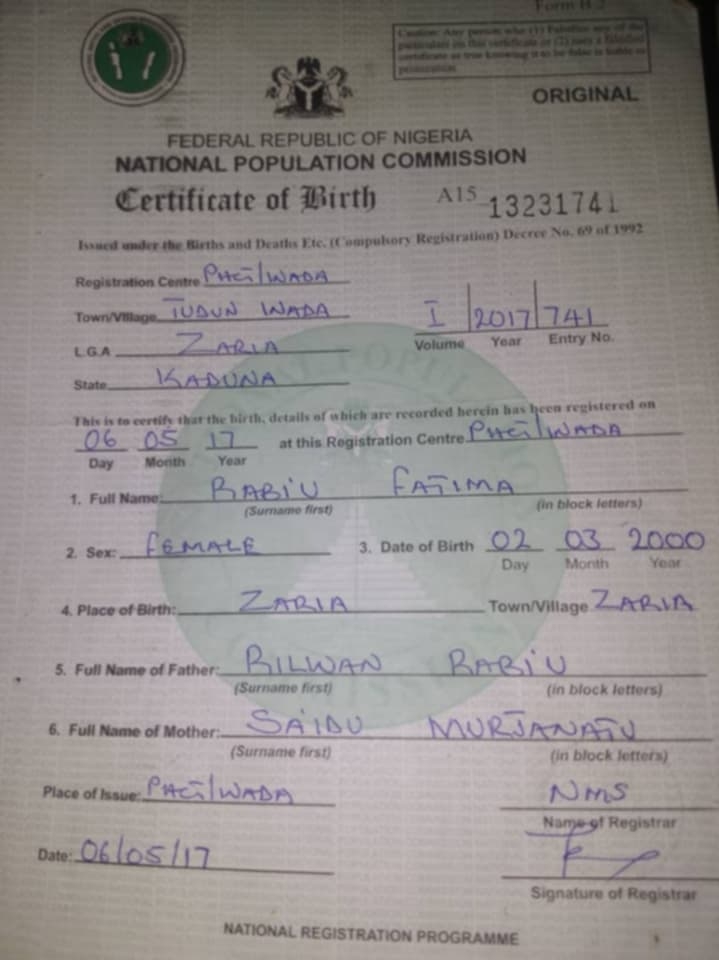 Form B.2
Caution: Any person who (1) Falsifies any of the
particulars on this certificate or (2) uses a falsified
certificate as true knowing it to be false is liable to
prosecution
ORIGINAL
FEDERAL REPUBLIC OF NIGERIA
NATIONAL POPULATION COMMISSION
Certificate of Birth A15 13231741
Issued under the Births and Deaths Etc. (Compulsory Registration) Decree No. 69 of 1992
Registration Centre
Town/Village TUDUN WADA
I 2017 741
Volume Year Entry No.
L.G.A ZARIA
State KADUNA
This is to certify that the birth, details of which are recorded herein has been registered on
06 05 17 at this Registration Centre
Day Month Year
1. Full Name: RABIU FATIMA
(Surname first) (in block letters)
2. Sex: FEMALE 3. Date of Birth 02 03 2000
Day Month Year
4. Place of Birth: ZARIA Town/Village ZARIA
5. Full Name of Father: RILWAN RABIU
(Surname first) (in block letters)
6. Full Name of Mother: SAIDU MURJANATU
(Surname first) (in block letters)
Place of Issue: NMS
Name of Registrar
Date: 06/05/17
Signature of Registrar
NATIONAL REGISTRATION PROGRAMME